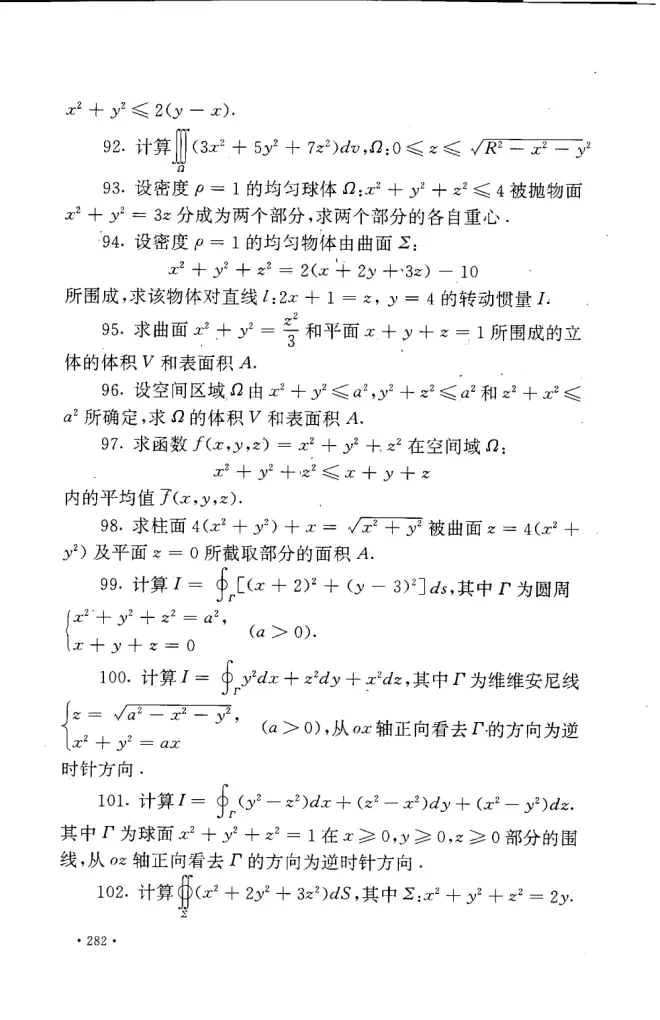 x² + y² ⩽ 2(y − x).
92. 计算∭_Ω (3x² + 5y² + 7z²)dv,Ω:0 ⩽ z ⩽ √(R² − x² − y²)
93. 设密度 ρ = 1 的均匀球体 Ω:x² + y² + z² ⩽ 4 被抛物面
x² + y² = 3z 分成为两个部分,求两个部分的各自重心.
94. 设密度 ρ = 1 的均匀物体由曲面 Σ:
x² + y² + z² = 2(x + 2y + 3z) − 10
所围成,求该物体对直线 l:2x + 1 = z, y = 4 的转动惯量 I.
95. 求曲面 x² + y² = z²/3 和平面 x + y + z = 1 所围成的立
体的体积 V 和表面积 A.
96. 设空间区域 Ω 由 x² + y² ⩽ a²,y² + z² ⩽ a² 和 z² + x² ⩽
a² 所确定,求 Ω 的体积 V 和表面积 A.
97. 求函数 f(x,y,z) = x² + y² + z² 在空间域 Ω:
x² + y² + z² ⩽ x + y + z
内的平均值 f̄(x,y,z).
98. 求柱面 4(x² + y²) + x = √(x² + y²) 被曲面 z = 4(x² +
y²) 及平面 z = 0 所截取部分的面积 A.
99. 计算 I = ∮_Γ [(x + 2)² + (y − 3)²]ds,其中 Γ 为圆周
{x² + y² + z² = a²,
x + y + z = 0 (a > 0).
100. 计算 I = ∮_Γ y²dx + z²dy + x²dz,其中 Γ 为维维安尼线
{z = √(a² − x² − y²),
x² + y² = ax (a > 0),从 ox 轴正向看去 Γ 的方向为逆
时针方向.
101. 计算 I = ∮_Γ (y² − z²)dx + (z² − x²)dy + (x² − y²)dz.
其中 Γ 为球面 x² + y² + z² = 1 在 x ⩾ 0,y ⩾ 0,z ⩾ 0 部分的围
线,从 oz 轴正向看去 Γ 的方向为逆时针方向.
102. 计算∯_Σ (x² + 2y² + 3z²)dS,其中 Σ:x² + y² + z² = 2y.
· 282 ·